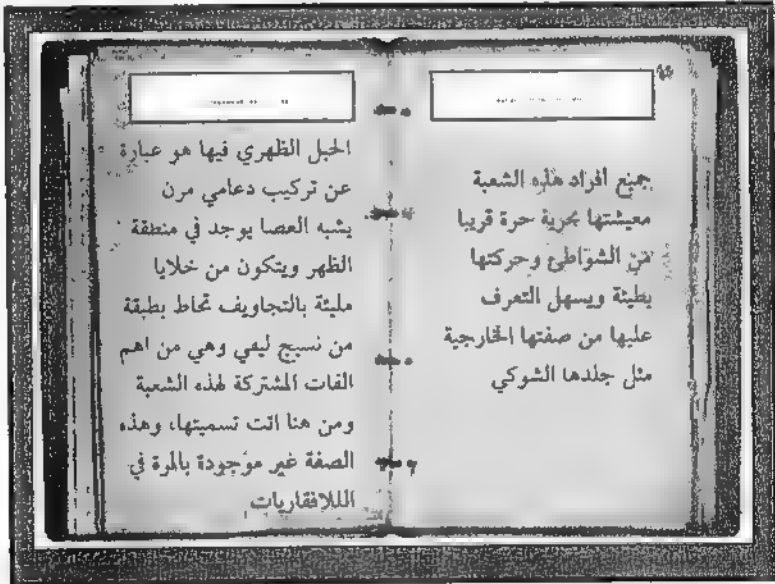 جميع افراد هذه الشعبة
معيشتها بحرية حرة قريبا
من الشواطئ وحركتها
بطيئة ويسهل التعرف
عليها من صفتها الخارجية
مثل جلدها الشوكي
الحبل الظهري فيها هو عبارة
عن تركيب دعامي مرن
يشبه العصا يوجد في منطقة
الظهر ويتكون من خلايا
مليئة بالتجاويف تحاط بطبقة
من نسيج ليفي وهي من اهم
الفات المشتركة لهذه الشعبة
ومن هنا اتت تسميتها، وهذه
الصفة غير موجودة بالمرة في
الللافقاريات